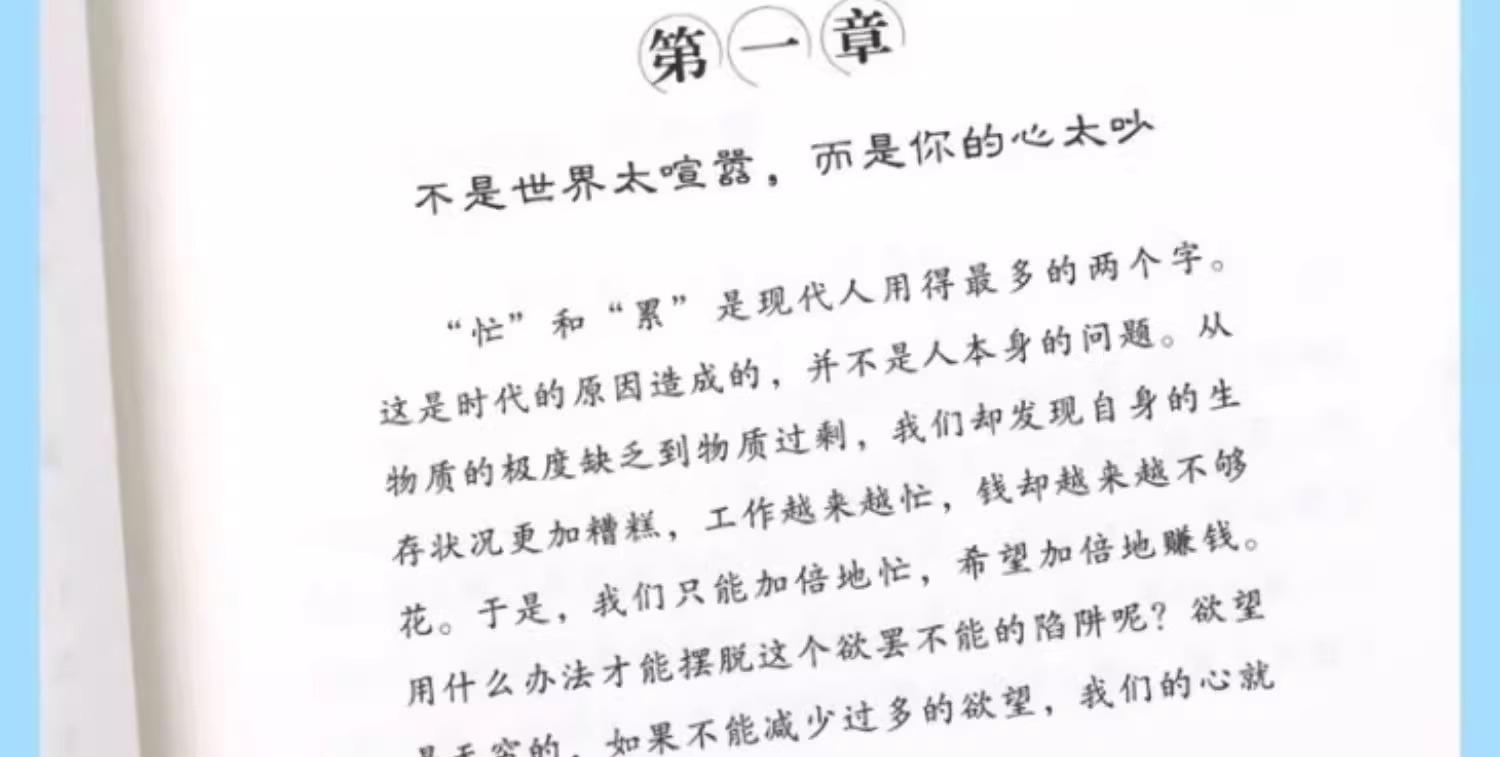 第一章
不是世界太喧嚣，而是你的心太吵
“忙”和“累”是现代人用得最多的两个字。
这是时代的原因造成的，并不是人本身的问题。从
物质的极度缺乏到物质过剩，我们却发现自身的生
存状况更加糟糕，工作越来越忙，钱却越来越不够
花。于是，我们只能加倍地忙，希望加倍地赚钱。
用什么办法才能摆脱这个欲罢不能的陷阱呢？欲望
是无穷的，如果不能减少过多的欲望，我们的心就